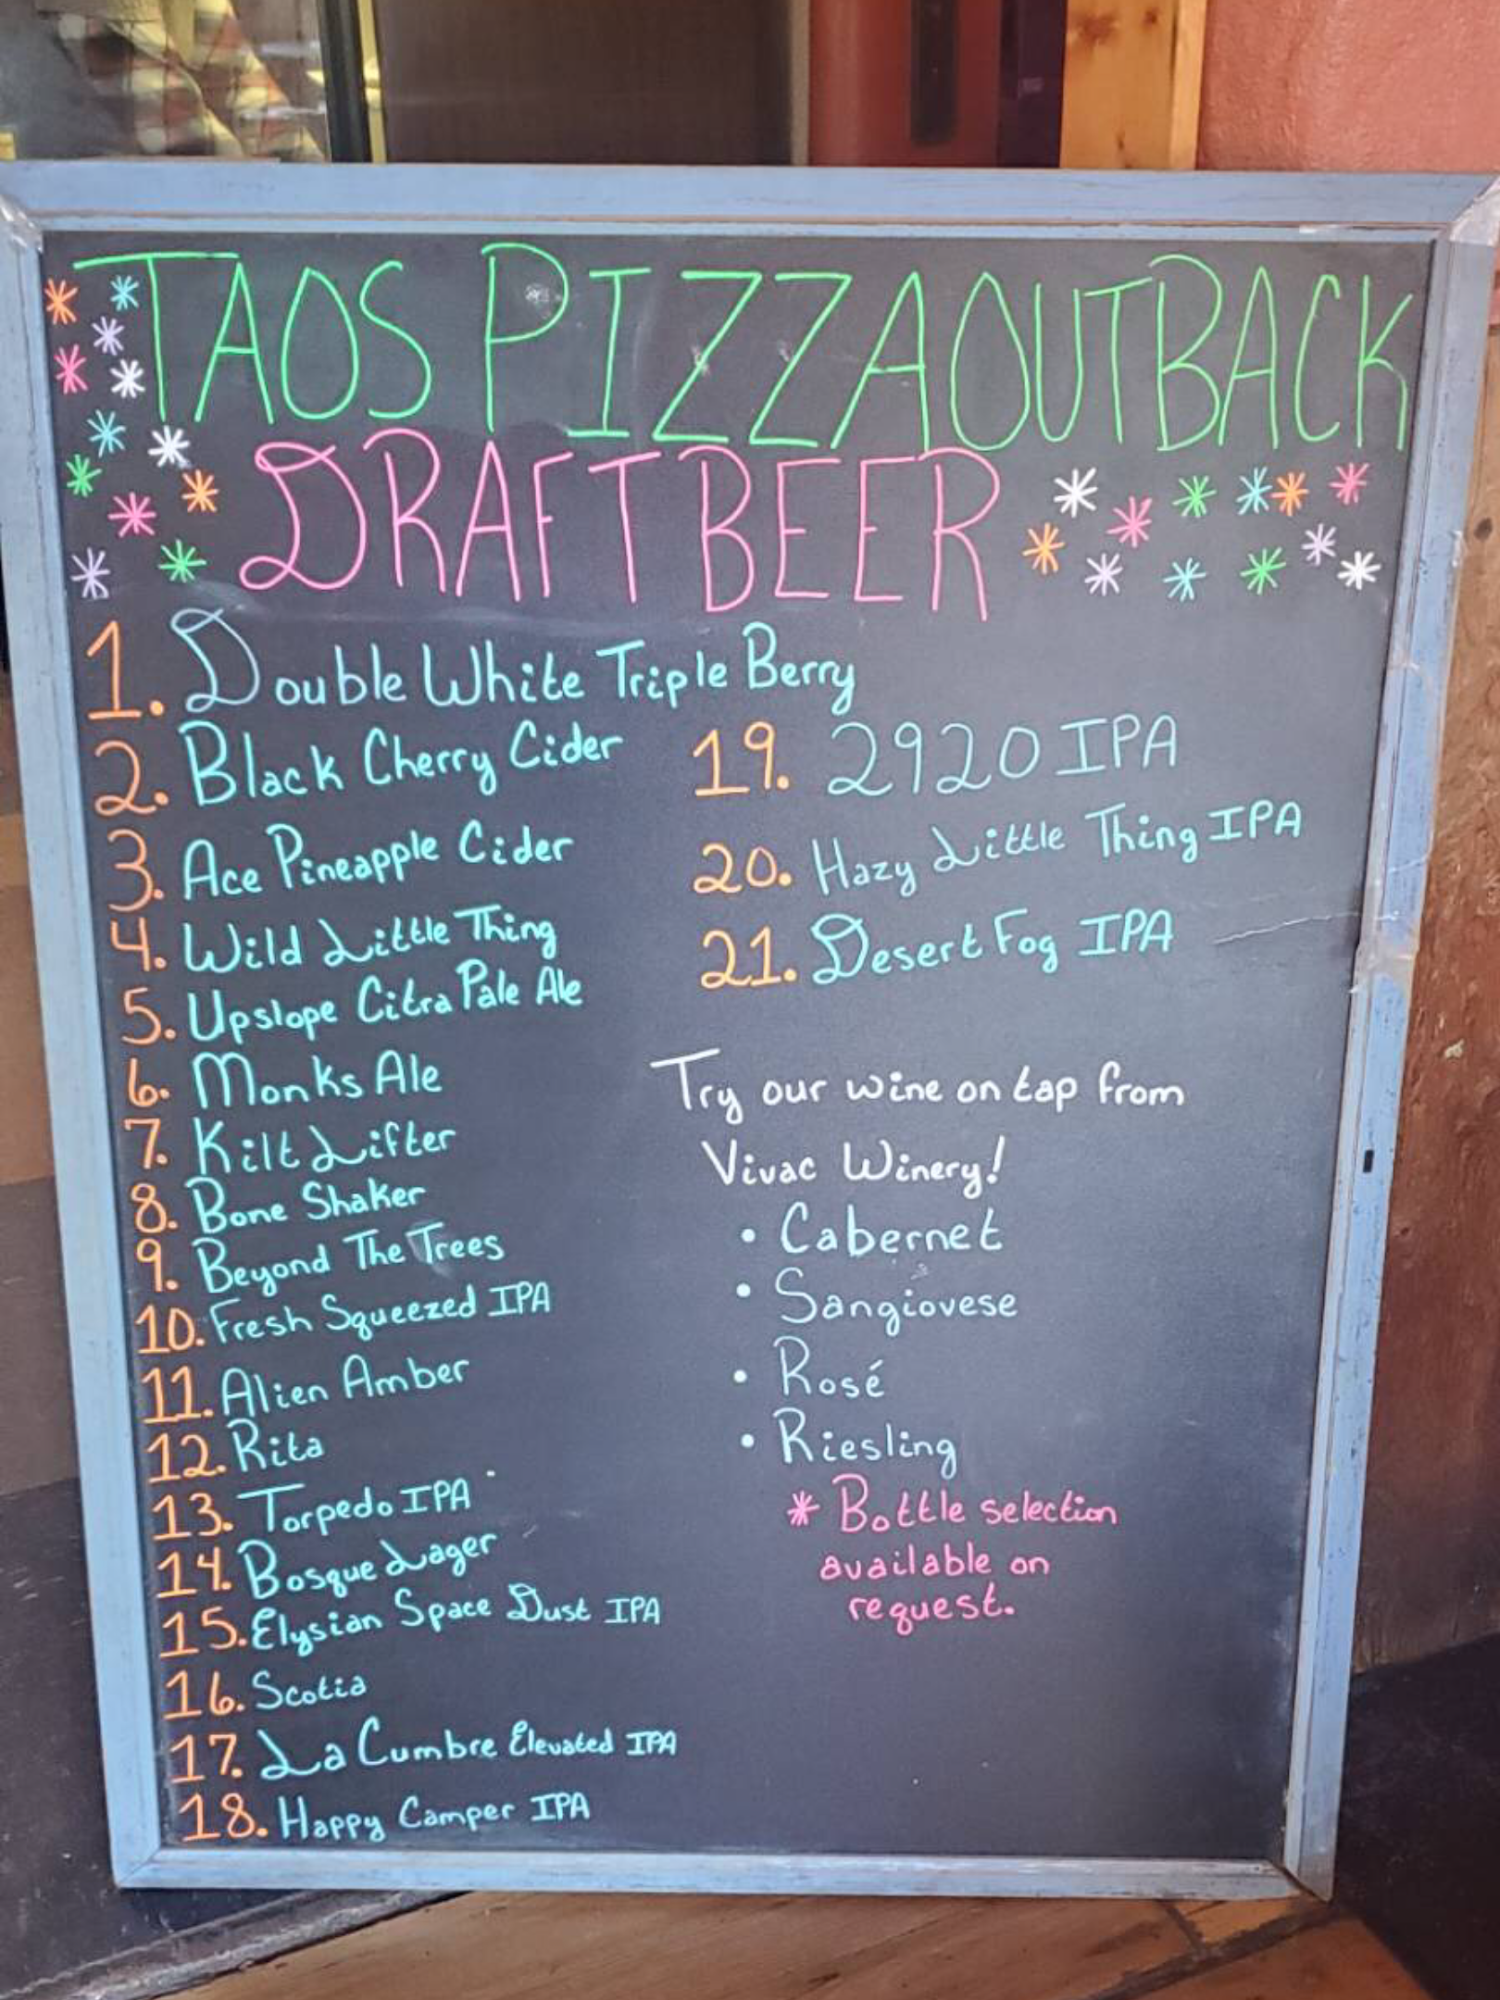 TAOS PIZZA OUTBACK
DRAFT BEER
1. Double White Triple Berry
2. Black Cherry Cider
3. Ace Pineapple Cider
4. Wild Little Thing
5. Upslope Citra Pale Ale
6. Monks Ale
7. Kilt Lifter
8. Bone Shaker
9. Beyond The Trees
10. Fresh Squeezed IPA
11. Alien Amber
12. Rita
13. Torpedo IPA
14. Bosque Lager
15. Elysian Space Dust IPA
16. Scotia
17. La Cumbre Elevated IPA
18. Happy Camper IPA
19. 2920 IPA
20. Hazy Little Thing IPA
21. Desert Fog IPA
Try our wine on tap from
Vivac Winery!
• Cabernet
• Sangiovese
• Rosé
• Riesling
* Bottle selection
available on
request.